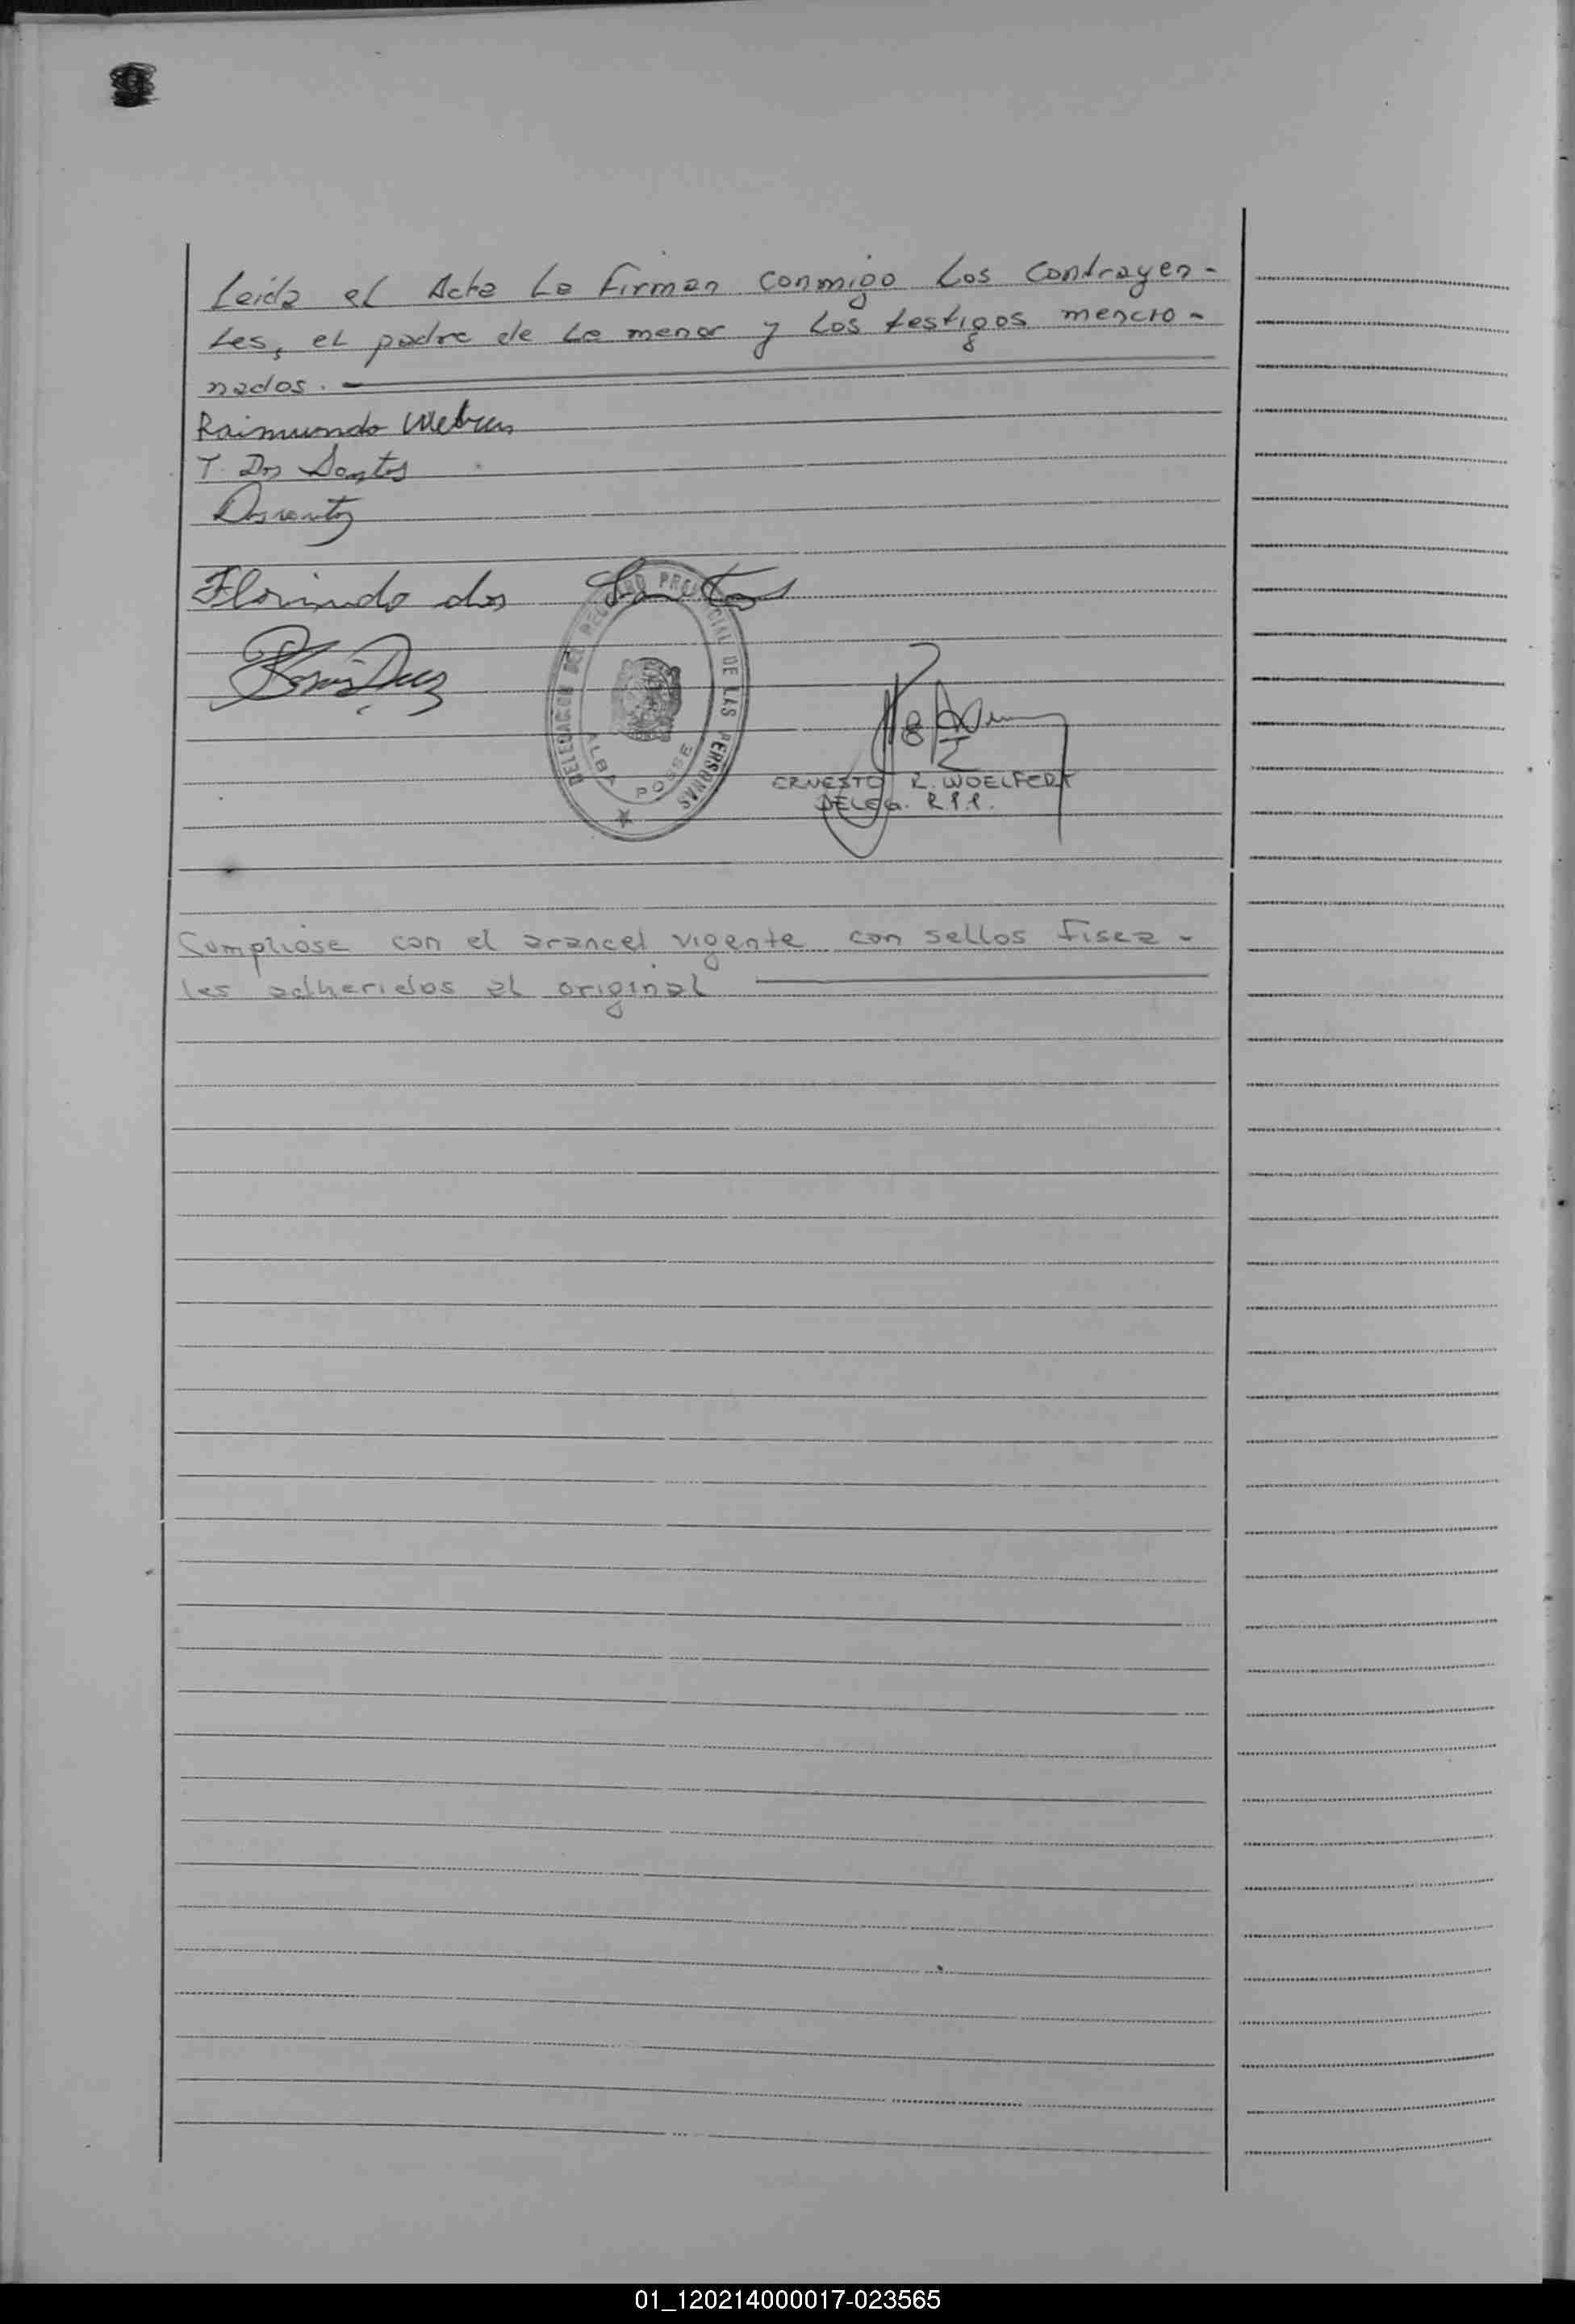 Leida el Acta la firman conmigo los contrayen-
tes, el padre de la menor y los testigos mencio-
nados. -
Raimundo
T. Dos Santos
Florindo dos Santos
DELEGACION DEL REGISTRO PROVINCIAL DE LAS PERSONAS
ALBA POSSE
ERNESTO R. WOELFERT
DELEG. R.P.P.
Cumpliose con el arancel vigente con sellos fisca-
les adheridos al original
01_120214000017-023565